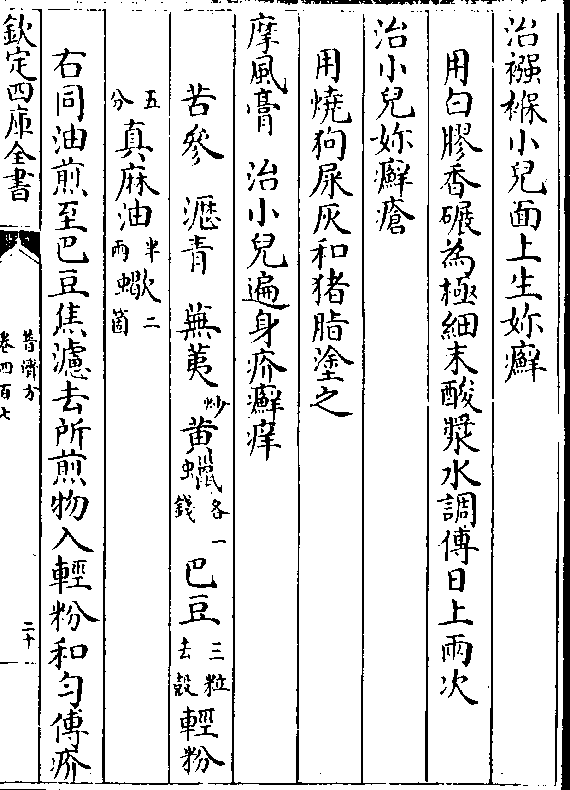 治襁褓小兒面上生妳癬
用白膠香碾為極細末酸漿水調傅日上兩次
治小兒妳癬瘡
用燒狗屎灰和猪脂塗之
摩風膏　治小兒遍身疥癬痒
苦參　瀝青　蕪荑炒　黄蠟各一錢　巴豆三粒去殼　輕粉
五分　真麻油半兩　蠍二箇
右同油煎至巴豆焦濾去所煎物入輕粉和勻傅疥
欽定四庫全書
普濟方
卷四百七
二十